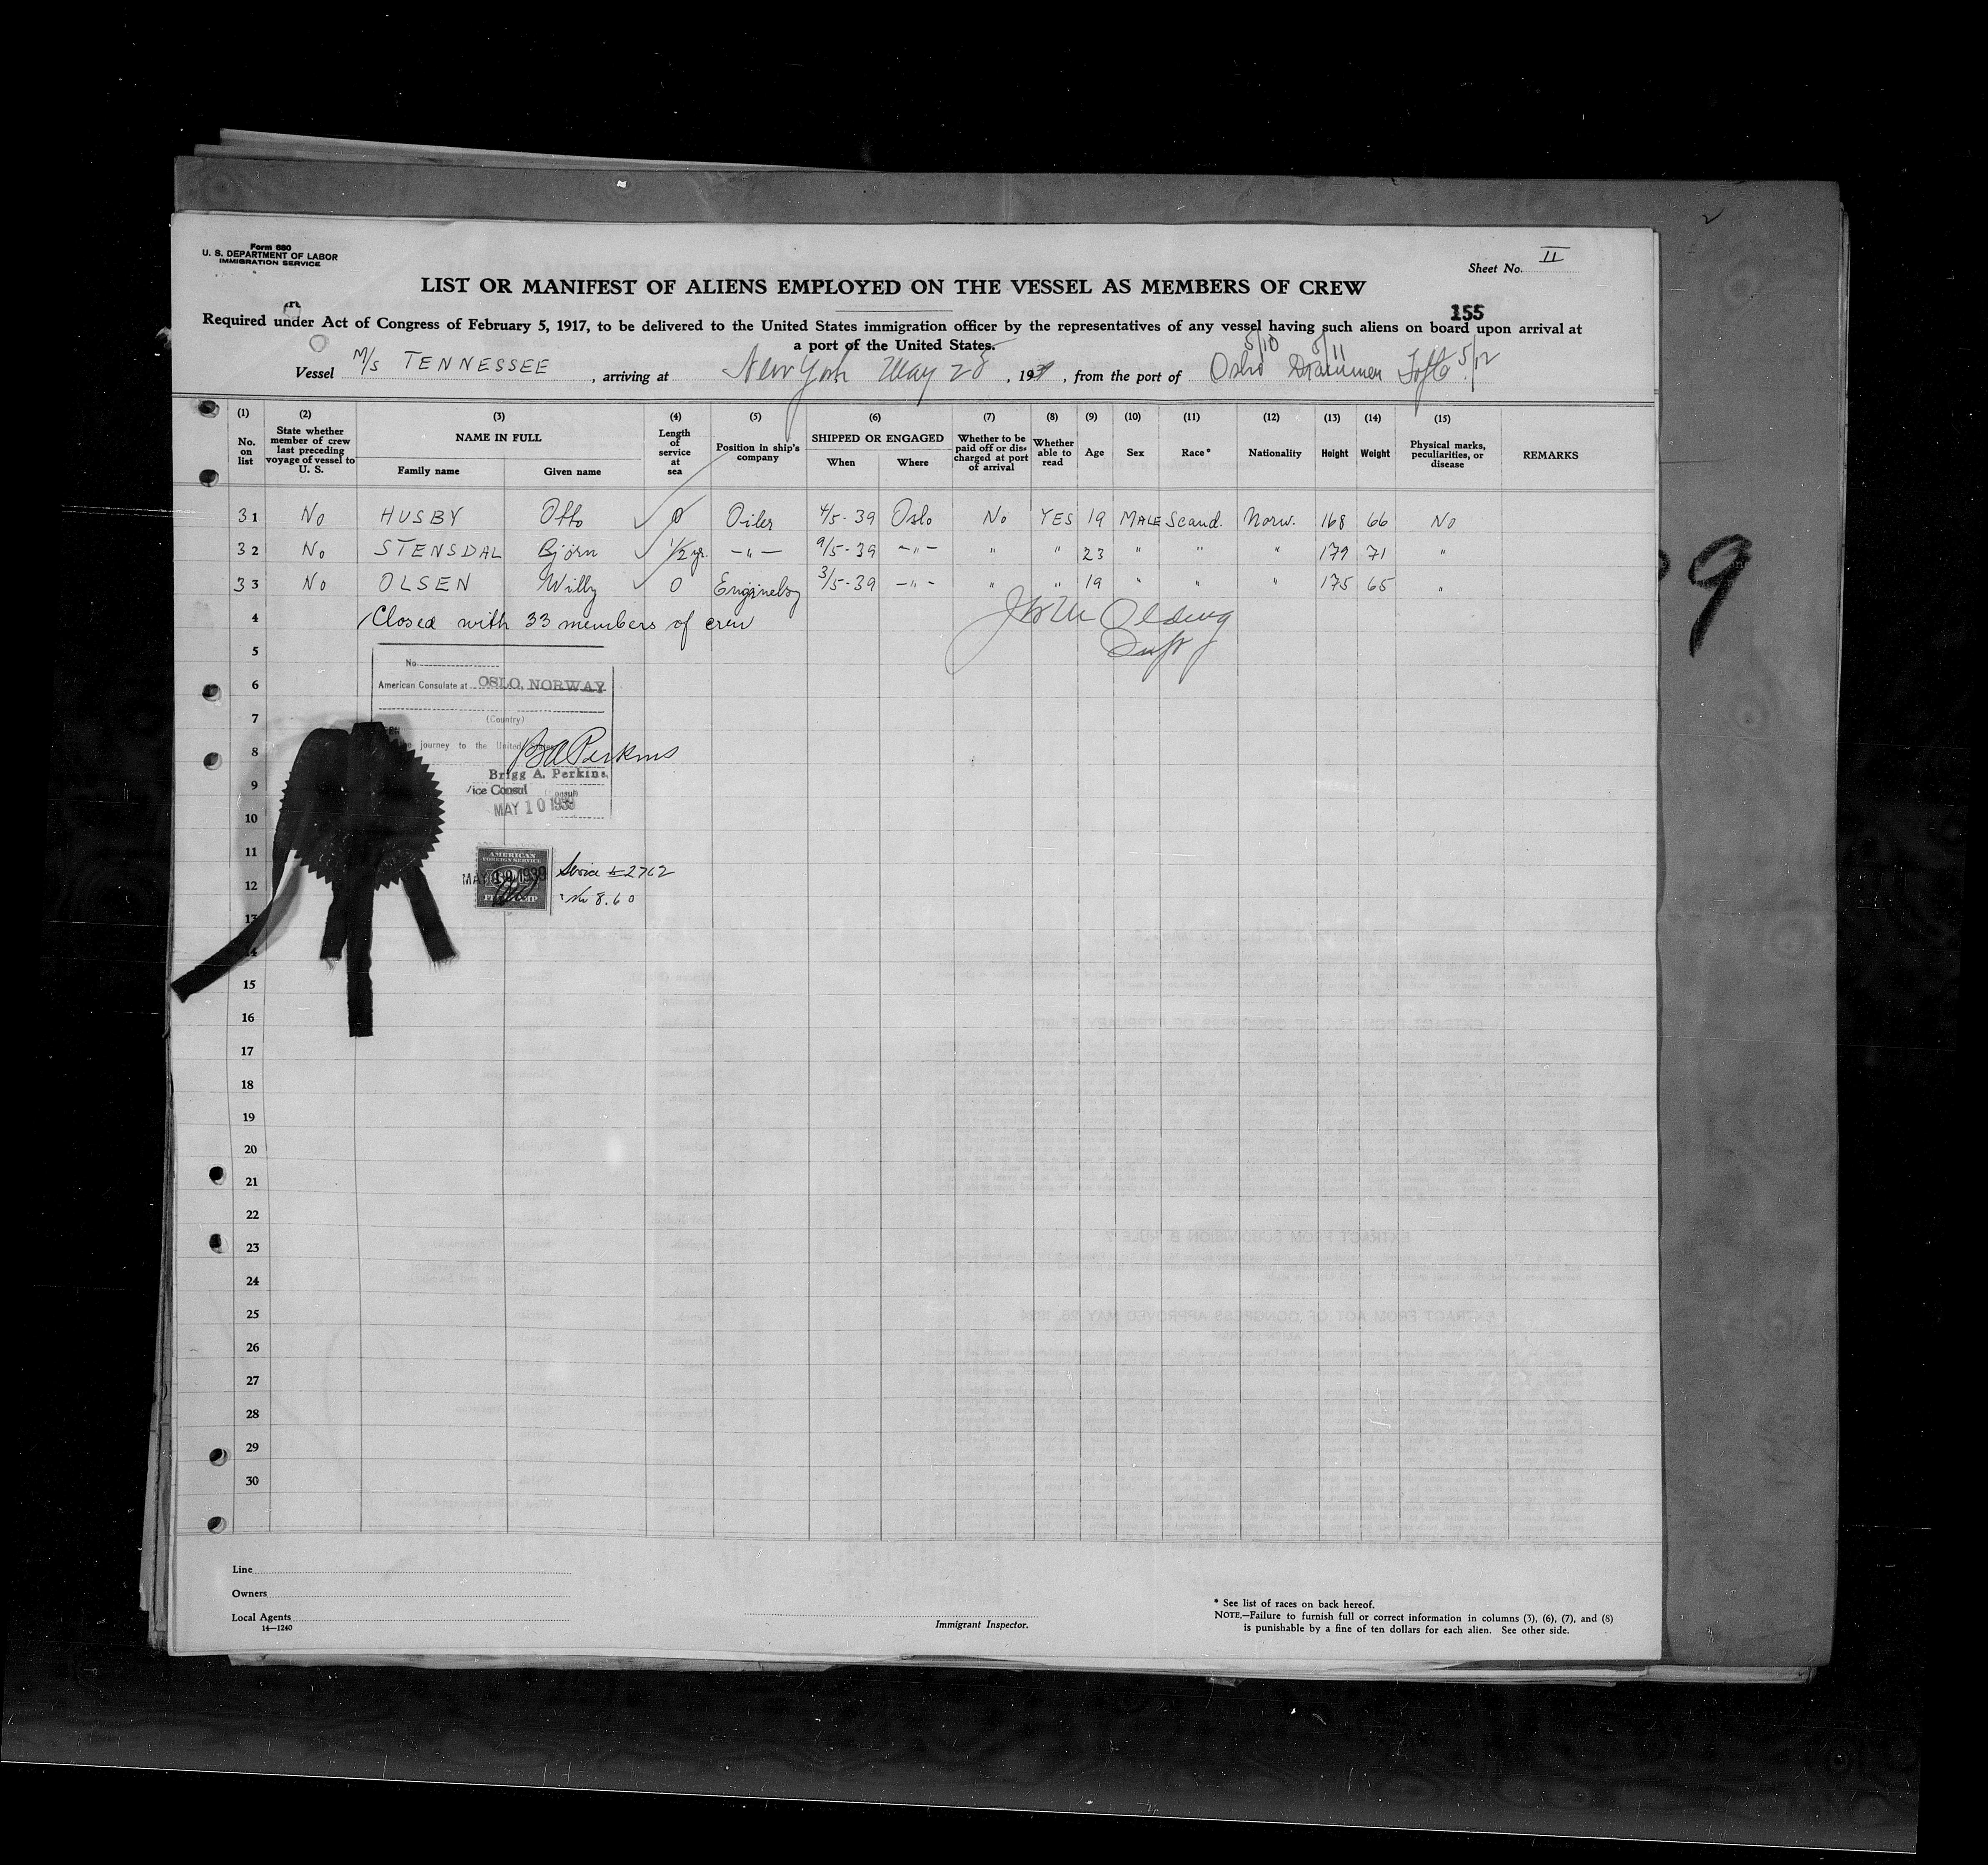 Form 680
U. S. DEPARTMENT OF LABOR
IMMIGRATION SERVICE
Sheet No. II
LIST OR MANIFEST OF ALIENS EMPLOYED ON THE VESSEL AS MEMBERS OF CREW
155
Required under Act of Congress of February 5, 1917, to be delivered to the United States immigration officer by the representatives of any vessel having such aliens on board upon arrival at
a port of the United States.
5/10 5/11 5/12
Vessel M/S TENNESSEE, arriving at New York May 28, 1939, from the port of Oslo Drammen Tofte
(1) (2) (3) (4) (5) (6) (7) (8) (9) (10) (11) (12) (13) (14) (15)
No. on list
State whether member of crew last preceding voyage of vessel to U. S.
NAME IN FULL
Family name
Given name
Length of service at sea
Position in ship's company
SHIPPED OR ENGAGED
When
Where
Whether to be paid off or discharged at port of arrival
Whether able to read
Age
Sex
Race*
Nationality
Height
Weight
Physical marks, peculiarities, or disease
REMARKS
31 No HUSBY Otto 0 Oiler 4/5-39 Oslo No YES 19 MALE Scand. Norw. 168 66 No
32 No STENSDAL Bjørn 1/2 yr. —"— 9/5-39 —"— " " 23 " " " 179 71 "
33 No OLSEN Willy 0 Engineboy 3/5-39 —"— " " 19 " " " 175 65 "
4 Closed with 33 members of crew
5
No.
6 American Consulate at OSLO, NORWAY
7 (Country)
8 journey to the United States
BA Perkins
9 Brigg A. Perkins.
Vice Consul
10 MAY 10 1939
11 AMERICAN
FOREIGN SERVICE
Service 2762
12 MAY 10 1939
FEE STAMP
8.60
13
14
15
16
17
18
19
20
21
22
23
24
25
26
27
28
29
30
Line
Owners
Local Agents
14—1240
Immigrant Inspector.
* See list of races on back hereof.
NOTE.—Failure to furnish full or correct information in columns (3), (6), (7), and (8)
is punishable by a fine of ten dollars for each alien. See other side.
9